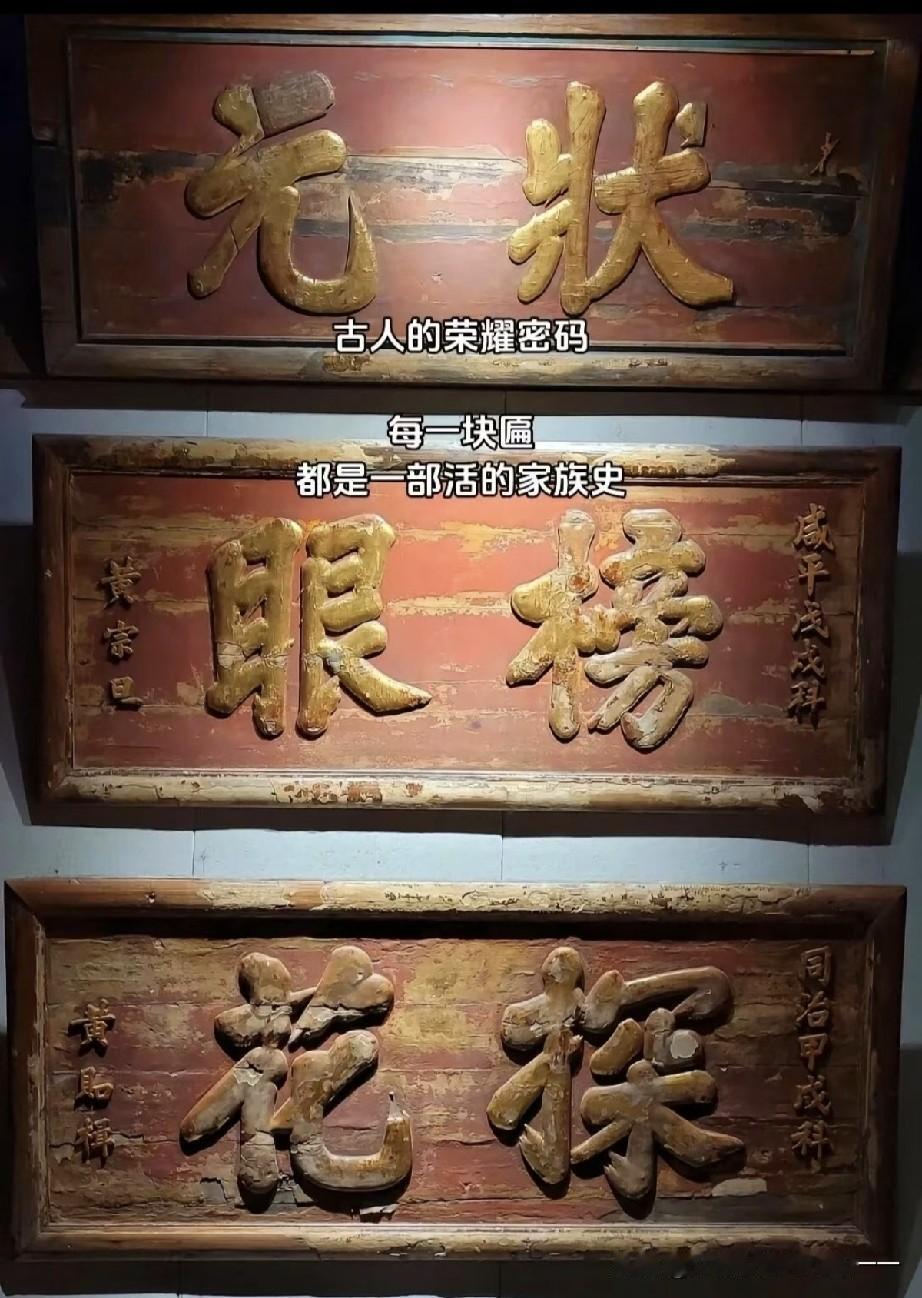 狀元
古人的荣耀密码
每一块匾
都是一部活的家族史
咸平戊戌科
榜眼
黃宗旦
同治甲戌科
探花
黃貽楫